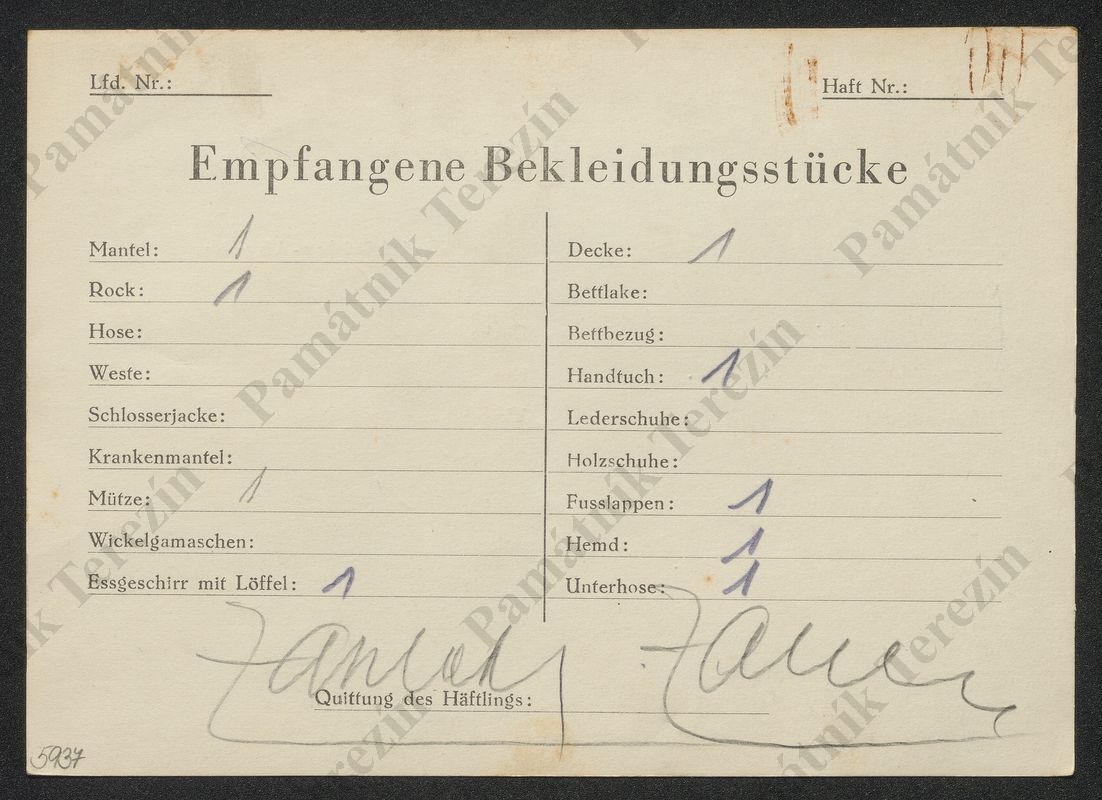 Lfd. Nr.:
Haft Nr.:
Empfangene Bekleidungsstücke
Mantel: 1
Rock: 1
Hose:
Weste:
Schlosserjacke:
Krankenmantel:
Mütze: 1
Wickelgamaschen:
Essgeschirr mit Löffel: 1
Decke: 1
Bettlake:
Bettbezug:
Handtuch: 1
Lederschuhe:
Holzschuhe:
Fusslappen: 1
Hemd: 1
Unterhose: 1
Quittung des Häftlings:
5937
Památník Terezín